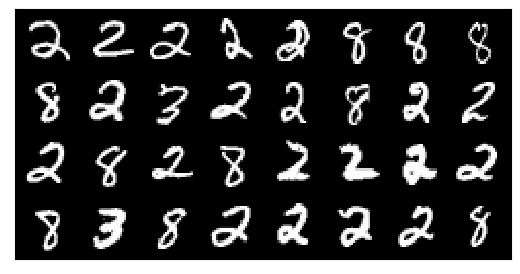 2 2 2 2 2 8 8 8
8 2 3 2 2 8 2 2
2 8 2 8 2 2 2 2
8 3 8 2 2 2 2 8